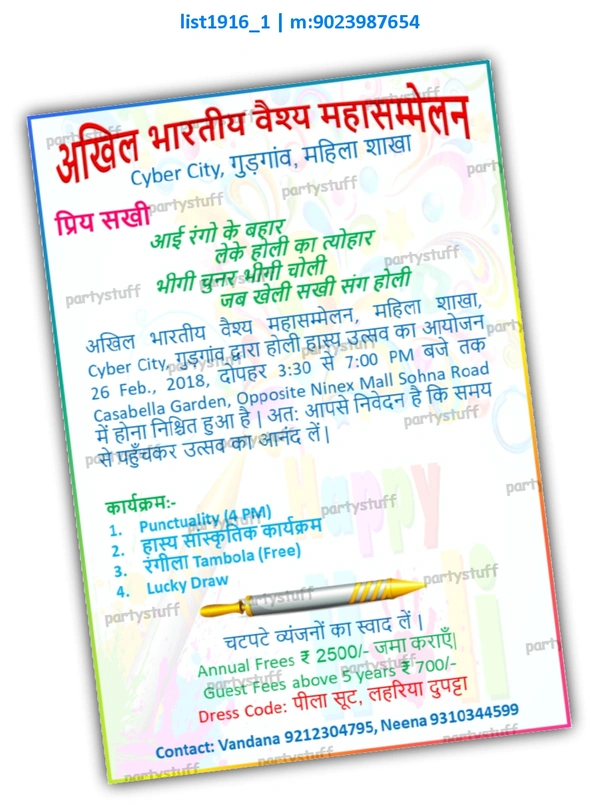 list1916_1 | m:9023987654
अखिल भारतीय वैश्य महासम्मेलन
Cyber City, गुड़गांव, महिला शाखा
प्रिय सखी
आई रंगो के बहार
लेके होली का त्योहार
भीगी चुनर भीगी चोली
जब खेली सखी संग होली
अखिल भारतीय वैश्य महासम्मेलन, महिला शाखा,
Cyber City, गुड़गांव द्वारा होली हास्य उत्सव का आयोजन
26 Feb., 2018, दोपहर 3:30 से 7:00 PM बजे तक
Casabella Garden, Opposite Ninex Mall Sohna Road
में होना निश्चित हुआ है | अत: आपसे निवेदन है कि समय
से पहुँचकर उत्सव का आनंद लें |
कार्यक्रम:-
1. Punctuality (4 PM)
2. हास्य सांस्कृतिक कार्यक्रम
3. रंगीला Tambola (Free)
4. Lucky Draw
Happy
Holi
चटपटे व्यंजनों का स्वाद लें |
Annual Frees ₹ 2500/- जमा कराएँ|
Guest Fees above 5 years ₹ 700/-
Dress Code: पीला सूट, लहरिया दुपट्टा
Contact: Vandana 9212304795, Neena 9310344599
partystuff